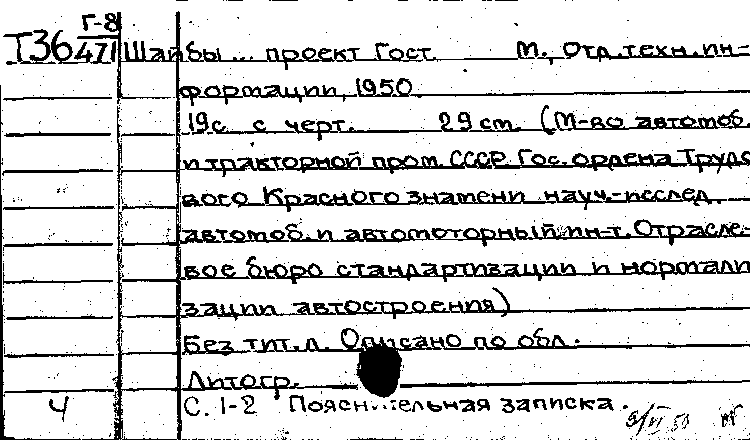 Г-8
Т36 471 Шайбы... проект Гост. М., Отд. техн. ин-
формации, 1950.
19с. с черт. 29 см. (М-во автомоб.
и тракторной пром. СССР. Гос. ордена Трудо
вого Красного знамени науч.-исслед.
автомоб. и автомоторный ин-т. Отрасле-
вое бюро стандартизации и нормали
зации автостроения)
Без тит. л. Описано по обл.
Литогр.
Ч С. 1-2 Пояснительная записка.